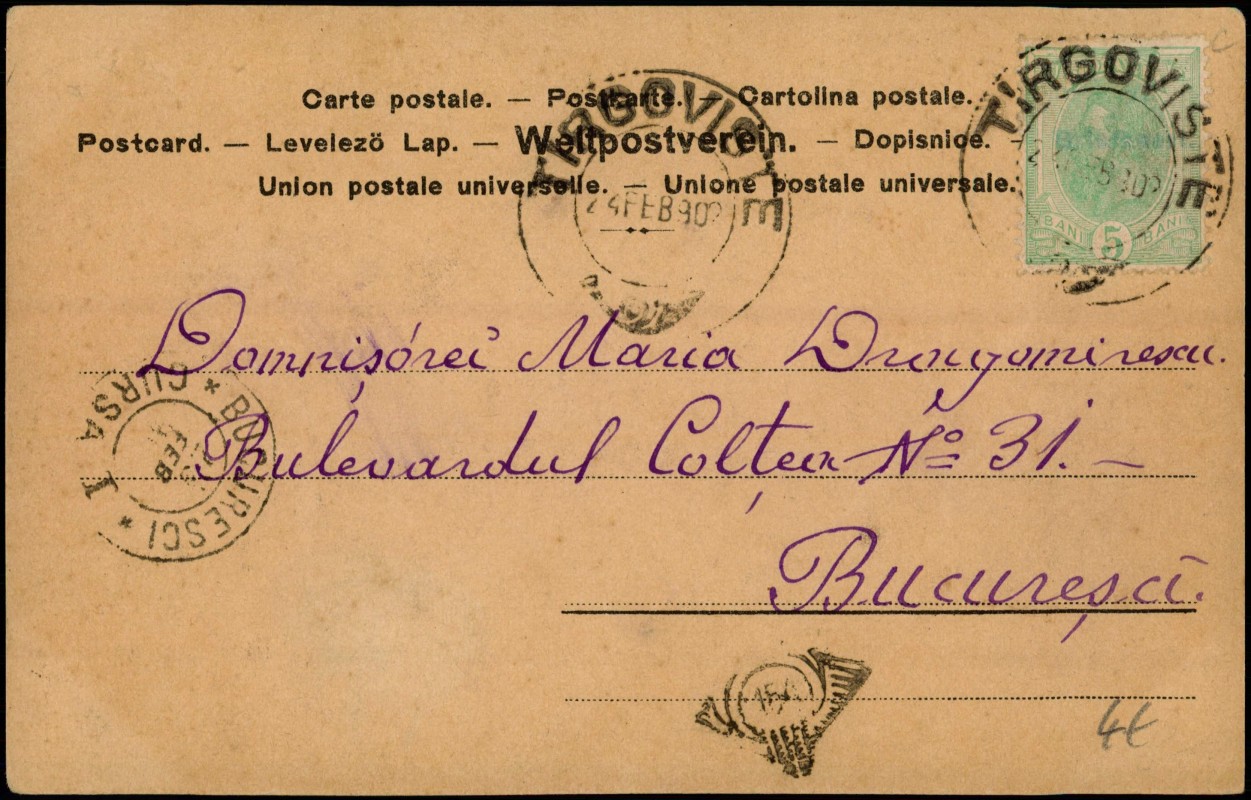 Carte postale. — Postkarte. — Cartolina postale.
Postcard. — Levelező Lap. — Weltpostverein. — Dopisnice. —
Union postale universelle. — Unione postale universale.
TIRGOVISTE
24 FEB 902
TIRGOVISTE
FEB 902
BANI 5 BANI
Domnișórei Maria Dragomirescu.
Bulevardul Colțea No 31. —
București.
* BUCURESCI *
CURSA I
FEB
154
4€